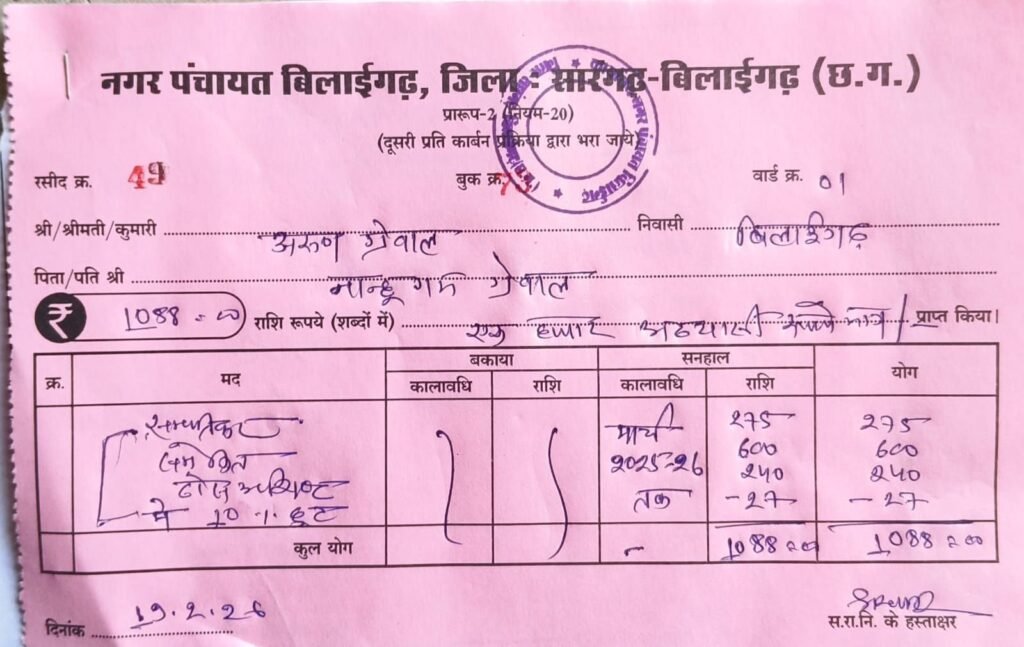 नगर पंचायत बिलाईगढ़, जिला : सारंगढ़-बिलाईगढ़ (छ.ग.)
प्रारूप-2 (नियम-20)
(दूसरी प्रति कार्बन प्रक्रिया द्वारा भरा जाये)
रसीद क्र. 49 बुक क्र. वार्ड क्र. 01
श्री/श्रीमती/कुमारी अरुण ग्रेवाल निवासी बिलाईगढ़
पिता/पति श्री ग्रेवाल
₹ 1088=00 राशि रूपये (शब्दों में) एक हजार अठयासी मात्र/ प्राप्त किया।
क्र. मद बकाया सनहाल योग
कालावधि राशि कालावधि राशि
सम्पत्तिकर मार्च 275 275
समेकित 2025-26 600 600
ठोस अपशिष्ट तक 240 240
में 10% छूट -27 -27
कुल योग - 1088=00 1088=00
दिनांक 19.2.26
स.रा.नि. के हस्ताक्षर